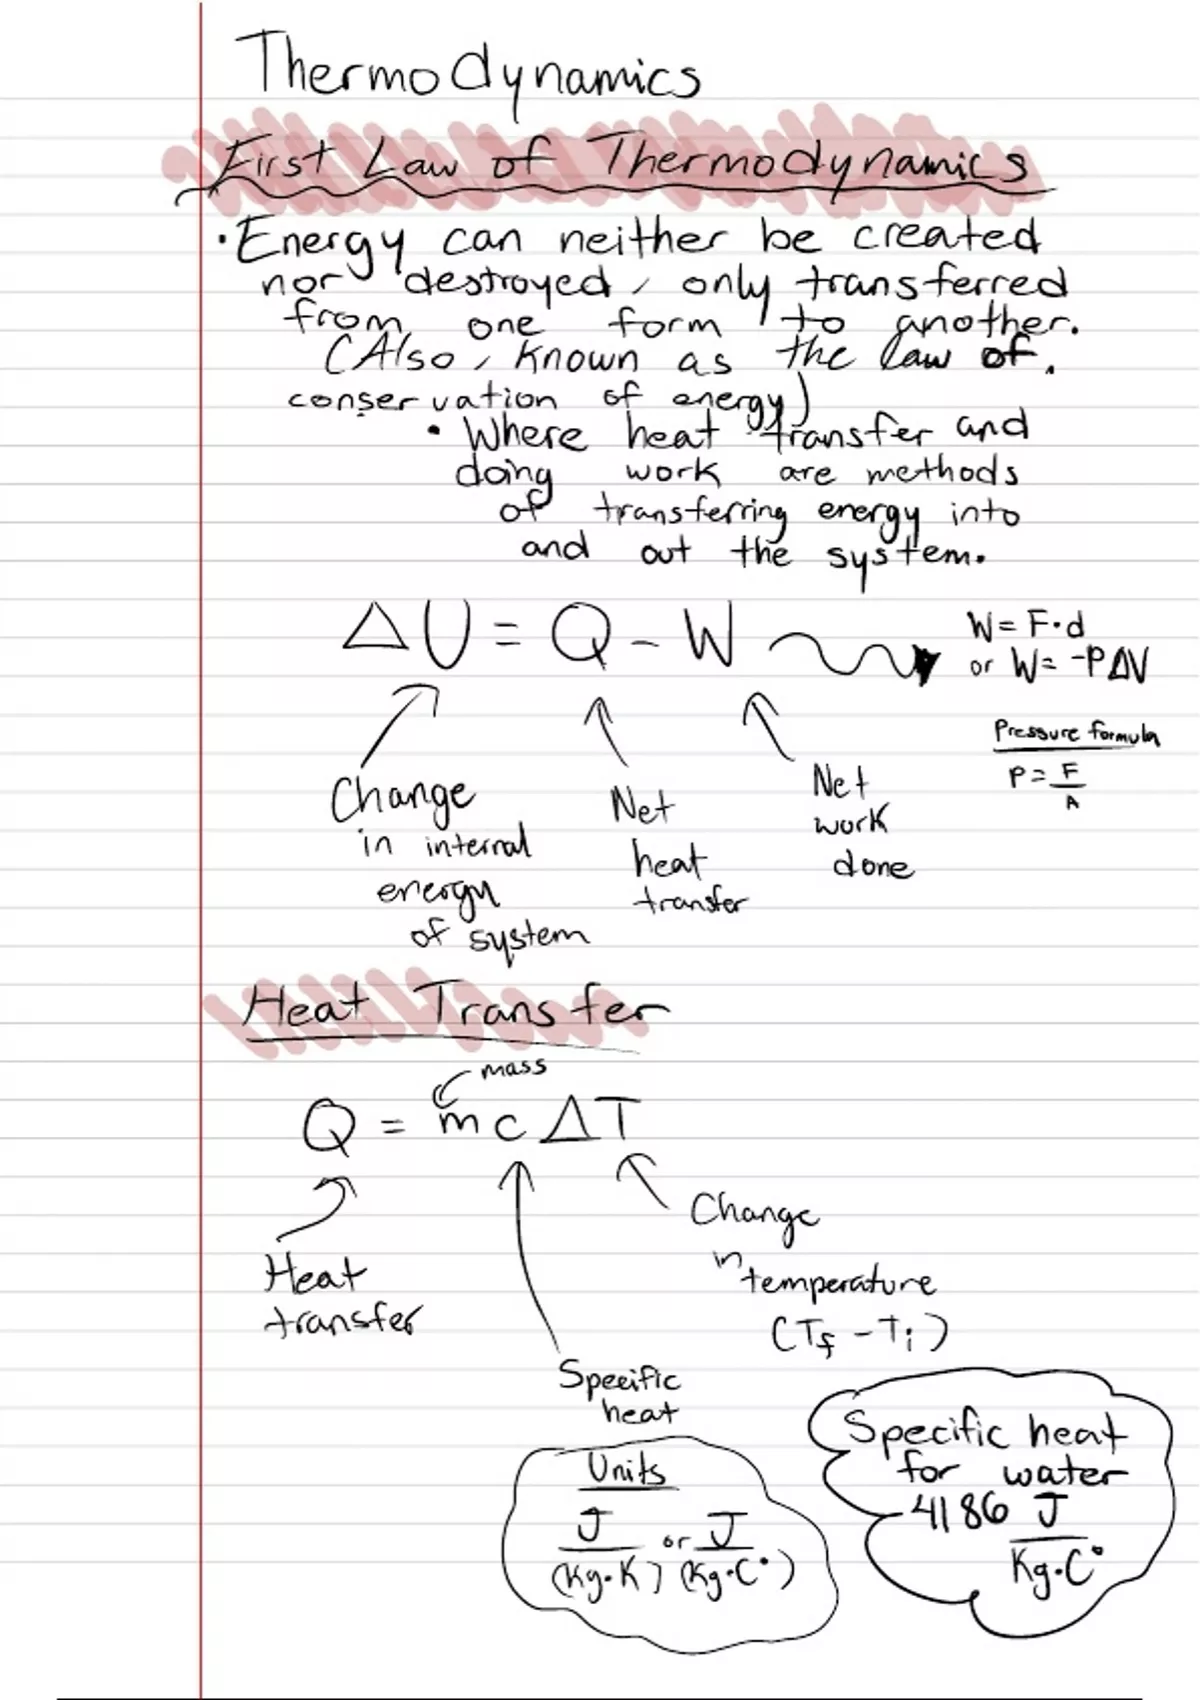 Thermodynamics
First Law of Thermodynamics
• Energy can neither be created
nor destroyed, only transferred
from one form to another.
(Also, known as the law of.
conservation of energy)
• Where heat transfer and
doing work are methods
of transferring energy into
and out the system.
ΔU = Q - W
W = F·d
or W = -PΔV
Pressure formula
P = F/A
Change
in internal
energy
of system
Net
heat
transfer
Net
work
done
Heat Transfer
mass
Q = mcΔT
Heat
transfer
Specific
heat
Change
in
temperature
(Tf - Ti)
Units
J/(Kg·K) or J/(Kg·C°)
Specific heat
for water
4186 J/Kg·C°